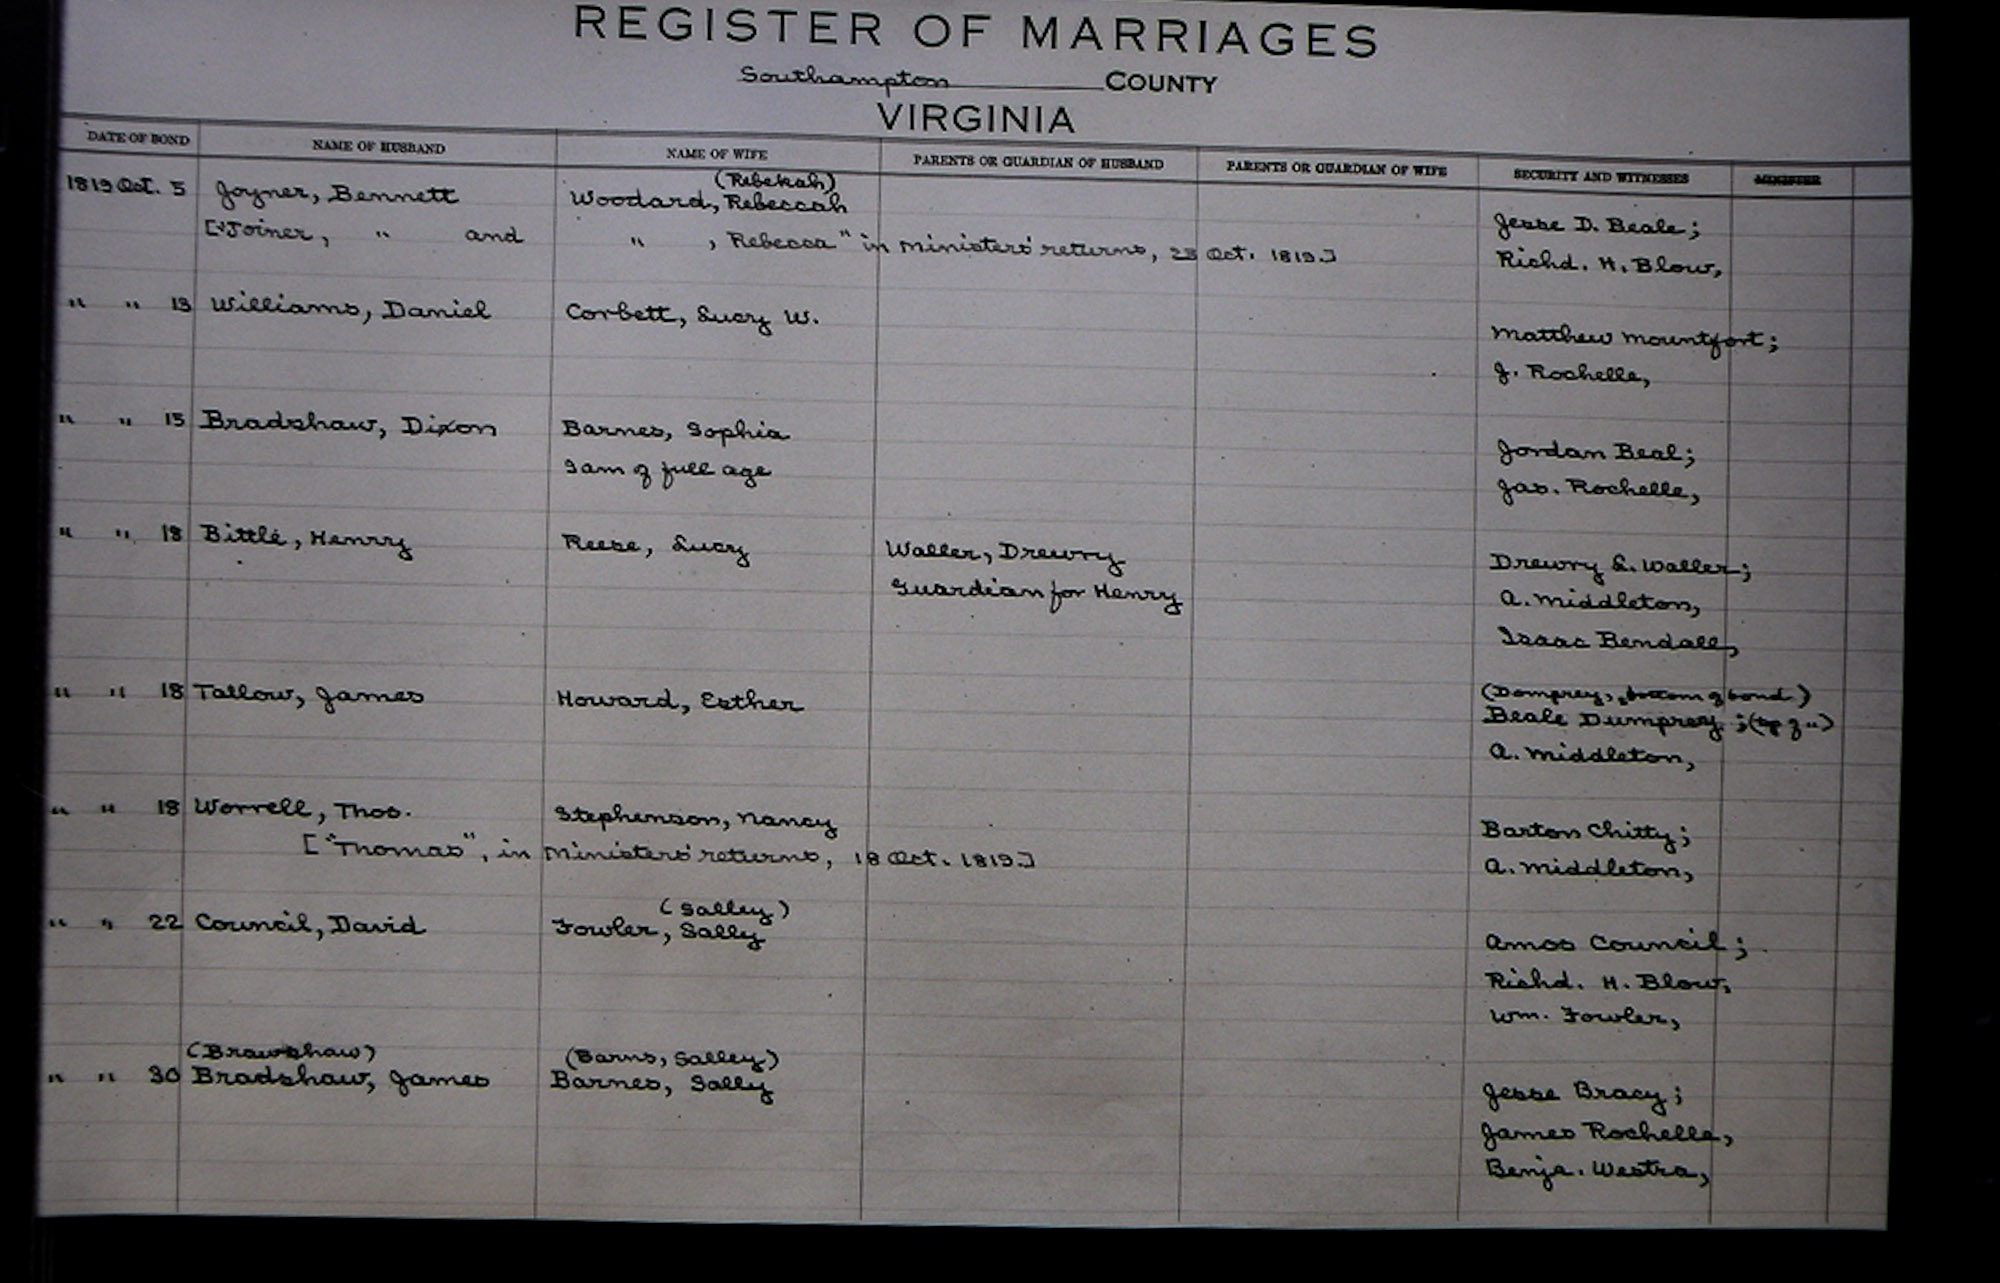 REGISTER OF MARRIAGES
Southampton COUNTY
VIRGINIA
DATE OF BOND NAME OF HUSBAND NAME OF WIFE PARENTS OR GUARDIAN OF HUSBAND PARENTS OR GUARDIAN OF WIFE SECURITY AND WITNESSES MINISTER
(Rebekah)
1819 Oct. 5 Joyner, Bennett Woodard, Rebeccah Jesse D. Beale;
["Joiner, " and " , Rebecca" in ministers' returns, 23 Oct. 1819.] Richd. H. Blow,
" " 13 Williams, Daniel Corbett, Lucy W. Matthew Mountfort;
J. Rochelle,
" " 15 Bradshaw, Dixon Barnes, Sophia Jordan Beal;
I am of full age Jas. Rochelle,
" " 18 Bittle, Henry Reese, Lucy Waller, Drewry Drewry S. Waller;
Guardian for Henry A. Middleton,
Isaac Bendall,
(Domprey, bottom of bond)
" " 18 Tallow, James Howard, Esther Beale Dumprey; (top of ")
A. Middleton,
" " 18 Worrell, Thos. Stephenson, Nancy Barton Chitty;
["Thomas", in ministers' returns, 18 Oct. 1819.] A. Middleton,
(Salley)
" " 22 Council, David Fowler, Sally Amos Council;
Richd. H. Blow,
Wm. Fowler,
(Brawshaw) (Barns, Salley)
" " 30 Bradshaw, James Barnes, Sally Jesse Bracy;
James Rochelle,
Benja. Westra,